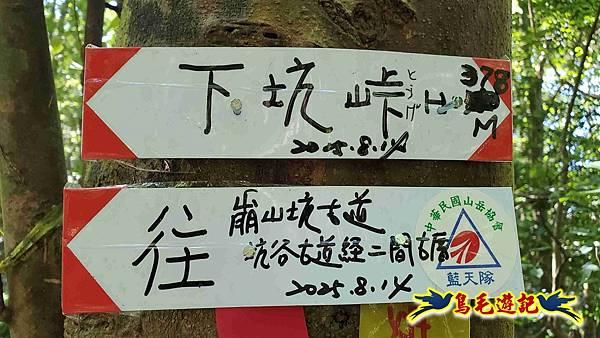 下坑峠H378M
とうげ
2025.8.14
往
崩山坑古道
坑谷古道經二間古厝
2025.8.14
中華民國山岳協會
藍天隊
鳥毛遊記